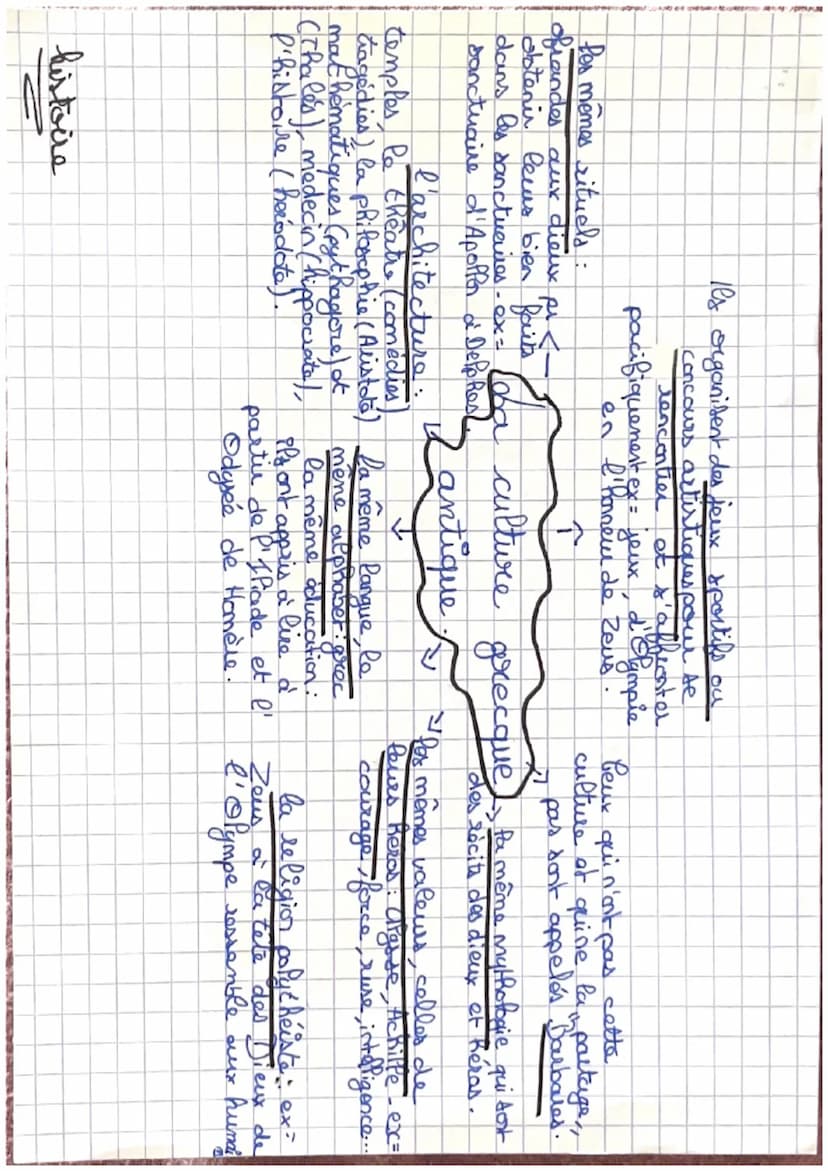 histoire
Ils organisent des jeux sportifs ou
concours artistiques pour se
rencontrer et s'affronter
pacifiquement ex = jeux d'Olympie
en l'honeur de Zeus.
les mêmes rituels :
offrandes aux dieux pr
obtenir leurs bien faits
dans les sanctuaires - ex =
sanctuaire d'Apollon à Delphes.
La culture grecque
antique.
Ceux qui n'ont pas cette
culture et qui ne la "partage"
pas sont appelés Barbares.
la même mythologie qui sont
des récits des dieux et héros.
les mêmes valeurs, celles de
leurs héros : Ulysse, Achille - ex =
courage, force, ruse, intelligence...
la religion polythéiste : ex =
Zeus à la tête des Dieux de
l'Olympe ressemble aux humai
la même langue, la
même alphabet : grec
la même éducation :
ils ont appris à lire à
partir de l'Iliade et l'
Odyssé de Homère.
l'architecture :
temples, le théâtre (comédies)
tragédies) la philosophie (Aristote)
mathématiques (pythagore) et
(Thalès), médecin (hippocrate),
l'histoire (hérodote).